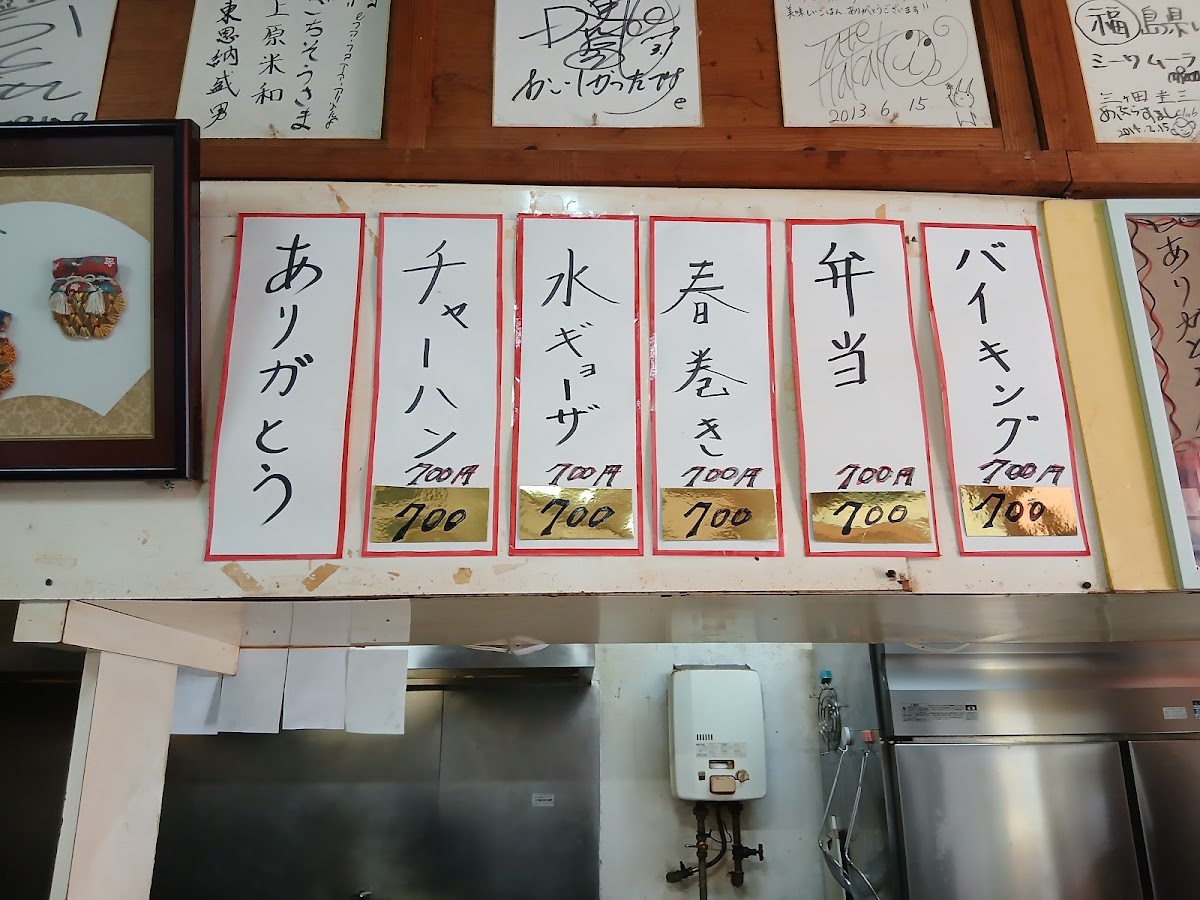 ごちそうさま
上原米和
東恩納盛男
おいしかったです
美味しいごはん ありがとうございます!!
2013 6. 15
福島県
ミーワムーラ
三ヶ田圭三
2014.2.15
バイキング
700円
700
弁当
700円
700
春巻き
700円
700
水ギョーザ
700円
700
チャーハン
700円
700
ありガとう